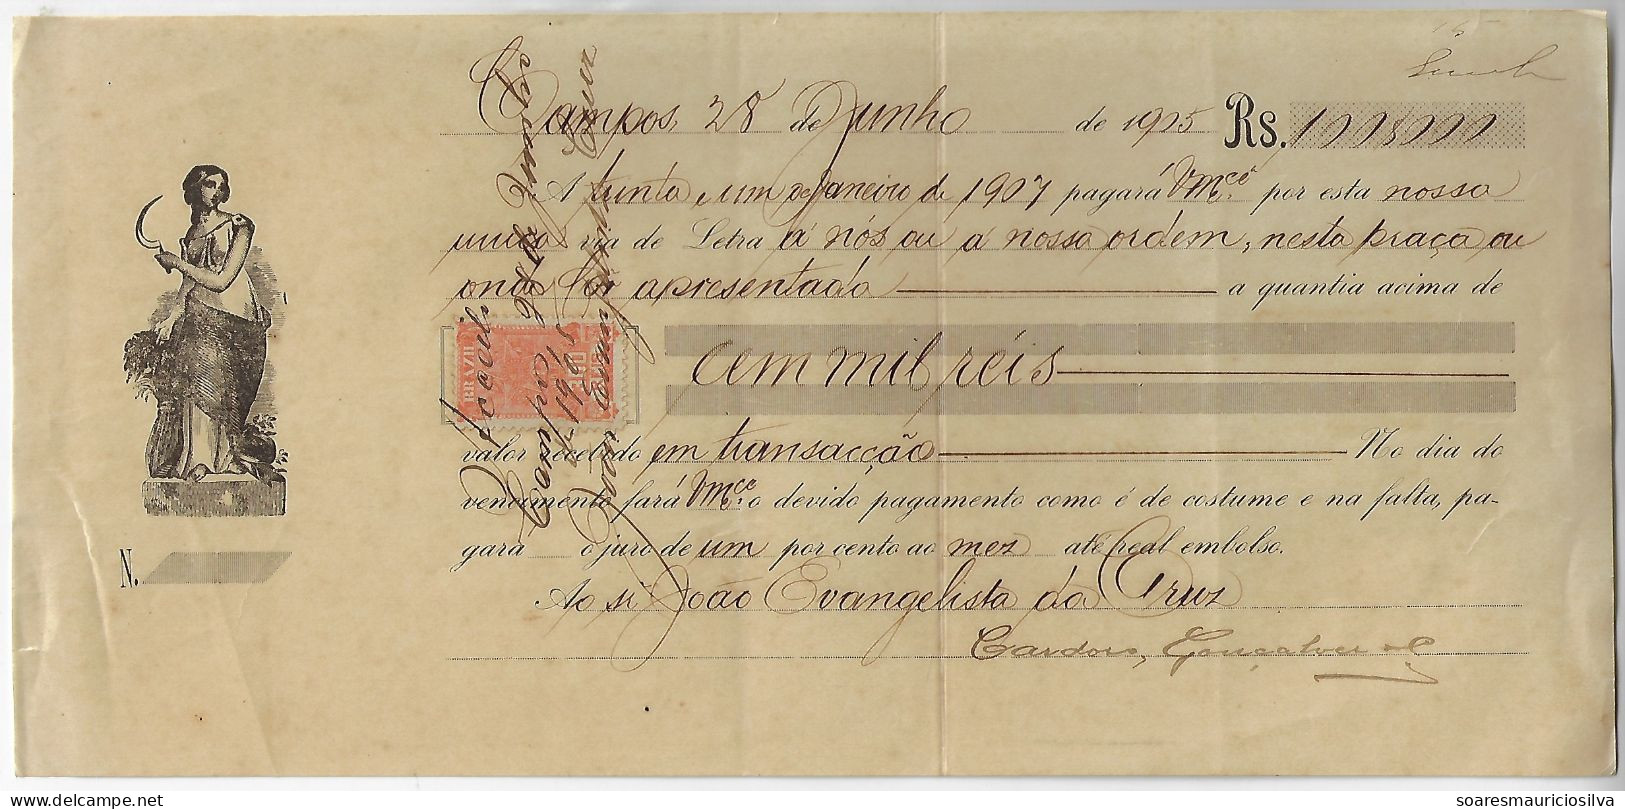 Campos, 28 de Junho de 1905 Rs. 100$000
A trinta e um de Janeiro de 1907 pagará Vmcê por esta nossa
unica via de Letra á nós ou á nossa ordem, nesta praça ou
onde fôr apresentada a quantia acima de
BRAZIL
cem mil réis
valor recebido em transacção No dia do
vencimento fará Vmcê o devido pagamento como é de costume e na falta, pa-
gará o juro de um por cento ao mez até real embolso.
N.
Ao sr João Evangelista da Cruz
Cardoso, Gonçalves & C
Acceito
Campos 28 de Junho
de 1905
João Evangelista da Cruz
soaresmauriciosilva